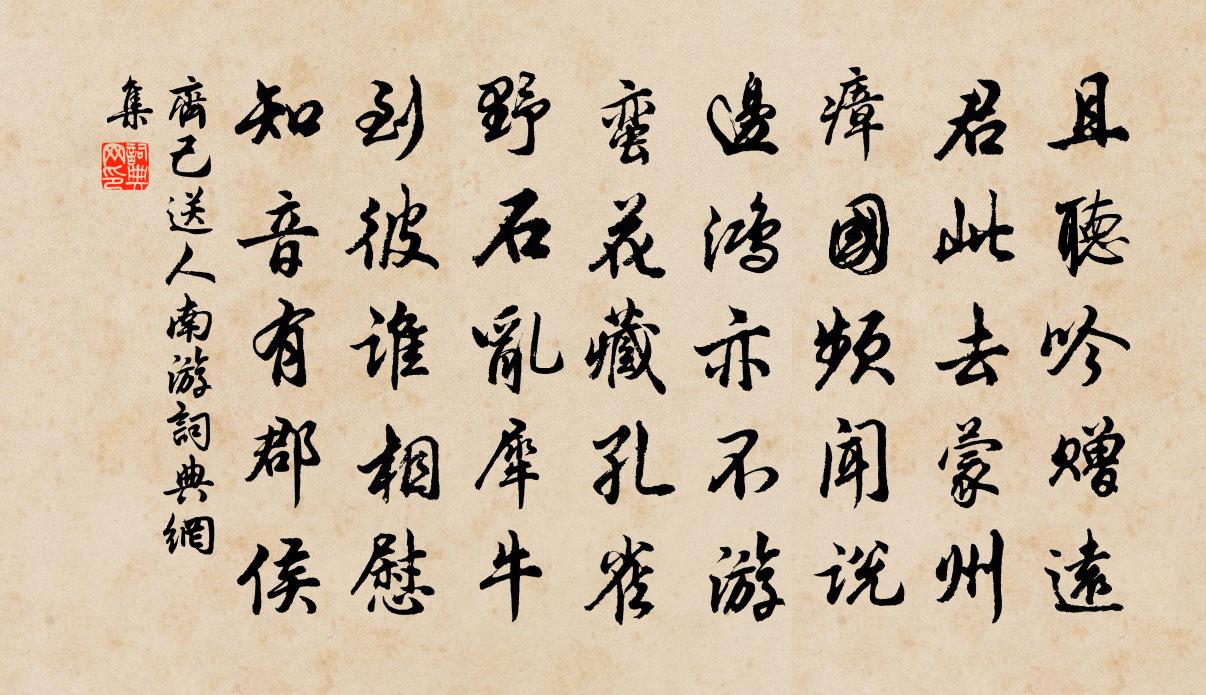 且聽吟贈遠
君此去蒙州
瘴國頻聞說
邊鴻亦不游
蠻花藏孔雀
野石亂犀牛
到彼誰相慰
知音有郡侯
齊己送人南游詞典網
集
詞典
网印